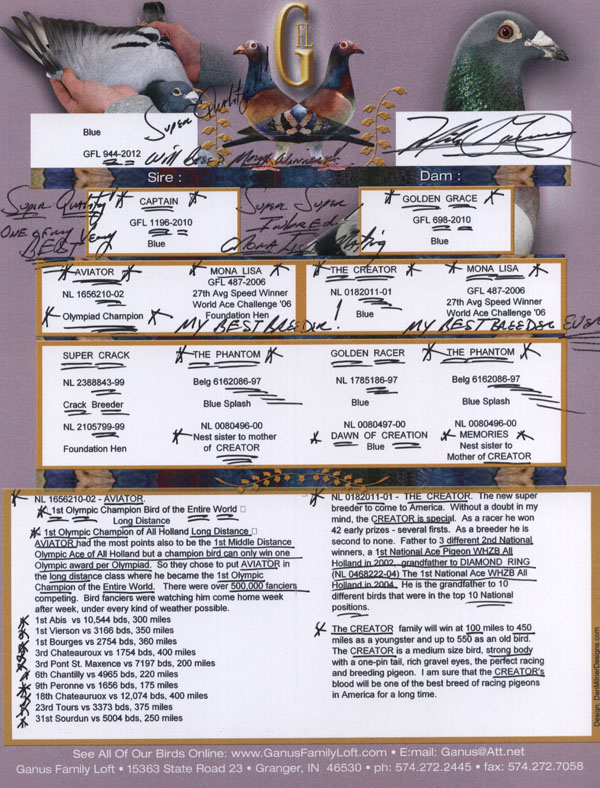 GFL
Super Quality
Blue
GFL 944-2012
Will Breed Many Winners
Sire :
Dam :
Super Quality
ONE of my
BEST
CAPTAIN
GFL 1196-2010
Blue
Super Super
Inbred
MONA LISA Mating
GOLDEN GRACE
GFL 698-2010
Blue
AVIATOR
NL 1656210-02
Olympiad Champion
MONA LISA
GFL 487-2006
27th Avg Speed Winner
World Ace Challenge '06
Foundation Hen
MY BEST BREEDER!
THE CREATOR
NL 0182011-01
Blue
MONA LISA
GFL 487-2006
27th Avg Speed Winner
World Ace Challenge '06
MY BEST BREEDER EVER
SUPER CRACK
NL 2388843-99
Crack Breeder
NL 2105799-99
Foundation Hen
THE PHANTOM
Belg 6162086-97
Blue Splash
NL 0080496-00
Nest sister to mother
of CREATOR
GOLDEN RACER
NL 1785186-97
Blue
NL 0080497-00
DAWN OF CREATION
Blue
THE PHANTOM
Belg 6162086-97
Blue Splash
NL 0080496-00
MEMORIES
Nest sister to
Mother of CREATOR
NL 1656210-02 - AVIATOR.
1st Olympic Champion Bird of the Entire World
Long Distance
1st Olympic Champion of All Holland Long Distance
AVIATOR had the most points also to be the 1st Middle Distance
Olympic Ace of All Holland but a champion bird can only win one
Olympic award per Olympiad. So they chose to put AVIATOR in
the long distance class where he became the 1st Olympic
Champion of the Entire World. There were over 500,000 fanciers
competing. Bird fanciers were watching him come home week
after week, under every kind of weather possible.
1st Abis vs 10,544 bds, 300 miles
1st Vierson vs 3166 bds, 350 miles
1st Bourges vs 2754 bds, 360 miles
3rd Chateauroux vs 1754 bds, 400 miles
3rd Pont St. Maxence vs 7197 bds, 200 miles
6th Chantilly vs 4965 bds, 220 miles
9th Peronne vs 1656 bds, 175 miles
18th Chateauruox vs 12,074 bds, 400 miles
23rd Tours vs 3373 bds, 375 miles
31st Sourdun vs 5004 bds, 250 miles
NL 0182011-01 - THE CREATOR. The new super
breeder to come to America. Without a doubt in my
mind, the CREATOR is special. As a racer he won
42 early prizes - several firsts. As a breeder he is
second to none. Father to 3 different 2nd National
winners, a 1st National Ace Pigeon WHZB All
Holland in 2002, grandfather to DIAMOND RING
(NL 0468222-04) The 1st National Ace WHZB All
Holland in 2004. He is the grandfather to 10
different birds that were in the top 10 National
positions.
The CREATOR family will win at 100 miles to 450
miles as a youngster and up to 550 as an old bird.
The CREATOR is a medium size bird, strong body
with a one-pin tail, rich gravel eyes, the perfect racing
and breeding pigeon. I am sure that the CREATOR's
blood will be one of the best breed of racing pigeons
in America for a long time.
Design: DanMilnerDesigns.com
See All Of Our Birds Online: www.GanusFamilyLoft.com • E:mail: Ganus@Att.net
Ganus Family Loft • 15363 State Road 23 • Granger, IN 46530 • ph: 574.272.2445 • fax: 574.272.7058